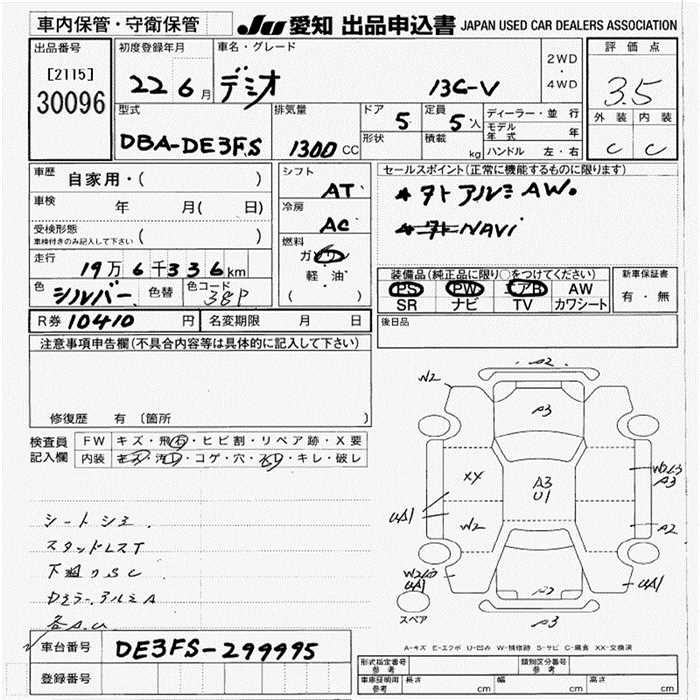 車内保管・守衛保管
JU 愛知 出品申込書 JAPAN USED CAR DEALERS ASSOCIATION
出品番号
[2115]
30096
初度登録年月
22 6月
車名・グレード
デミオ 13C-V
2WD
・
4WD
評価点
3.5
外装 内装
C C
型式
DBA-DE3FS
排気量
1300 CC
ドア 5
形状
定員 5人
積載 kg
ディーラー・並行
モデル年式 年
ハンドル 左・右
車歴 自家用・( )
車検 年 月( 日)
受検形態
車検付きのみ記入して下さい ( )
走行 19万6千336km
色 シルバー 色替 色コード 38P
R券 10410 円 名変期限 月 日
シフト AT
冷房 AC
燃料
ガソリン
軽・油
( )
セールスポイント(正常に機能するものに限ります)
NAVi
装備品(純正品に限り○をつけてください)
PS PW エアB AW
SR ナビ TV カワシート
新車保証書
有・無
後日品
注意事項申告欄(不具合内容等は具体的に記入して下さい)
修復歴 有 〔箇所 〕
検査員記入欄
FW キズ・飛石・ヒビ割・リペア跡・X要
内装 キズ・汚れ・コゲ・穴・スレ・キレ・破レ
シートシミ
スタッドレスT
下廻りSC
Dミラー、アルミA
各A.U
車台番号 DE3FS-299995
登録番号
W2 A2
A3
XX A3 U1
A3
UA1 W2 A2
UA1
スペア
A3
A-キズ E-エクボ U-凹み W-補修跡 S-サビ C-腐食 XX-交換済
形式指定番号 参考 類別区分番号 参考
車庫証明用 参考 長さ cm 幅 cm 高さ cm